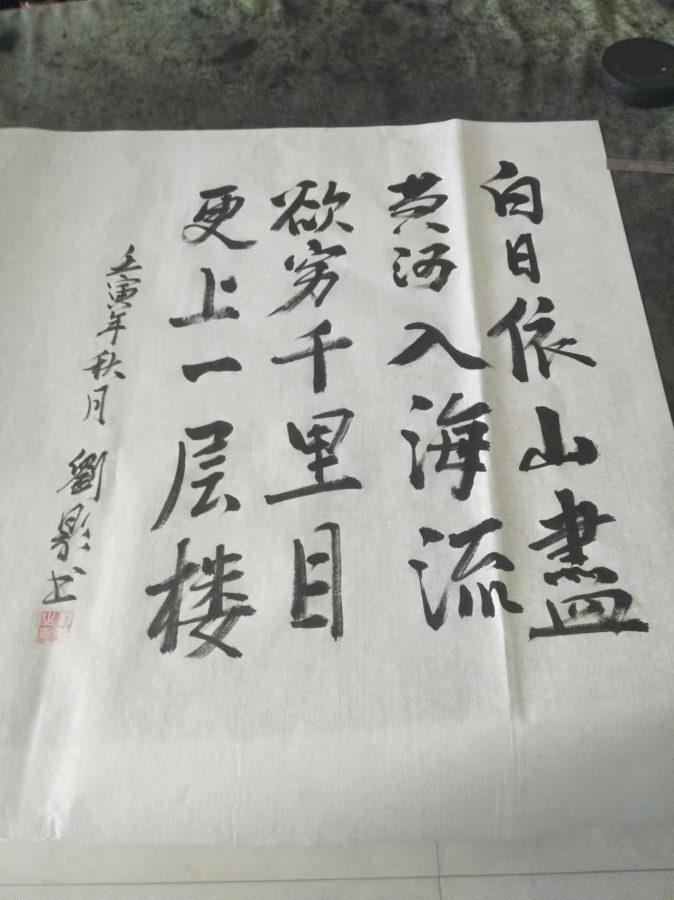 白日依山盡
黄河入海流
欲穷千里目
更上一层楼
壬寅年秋月 劉影书